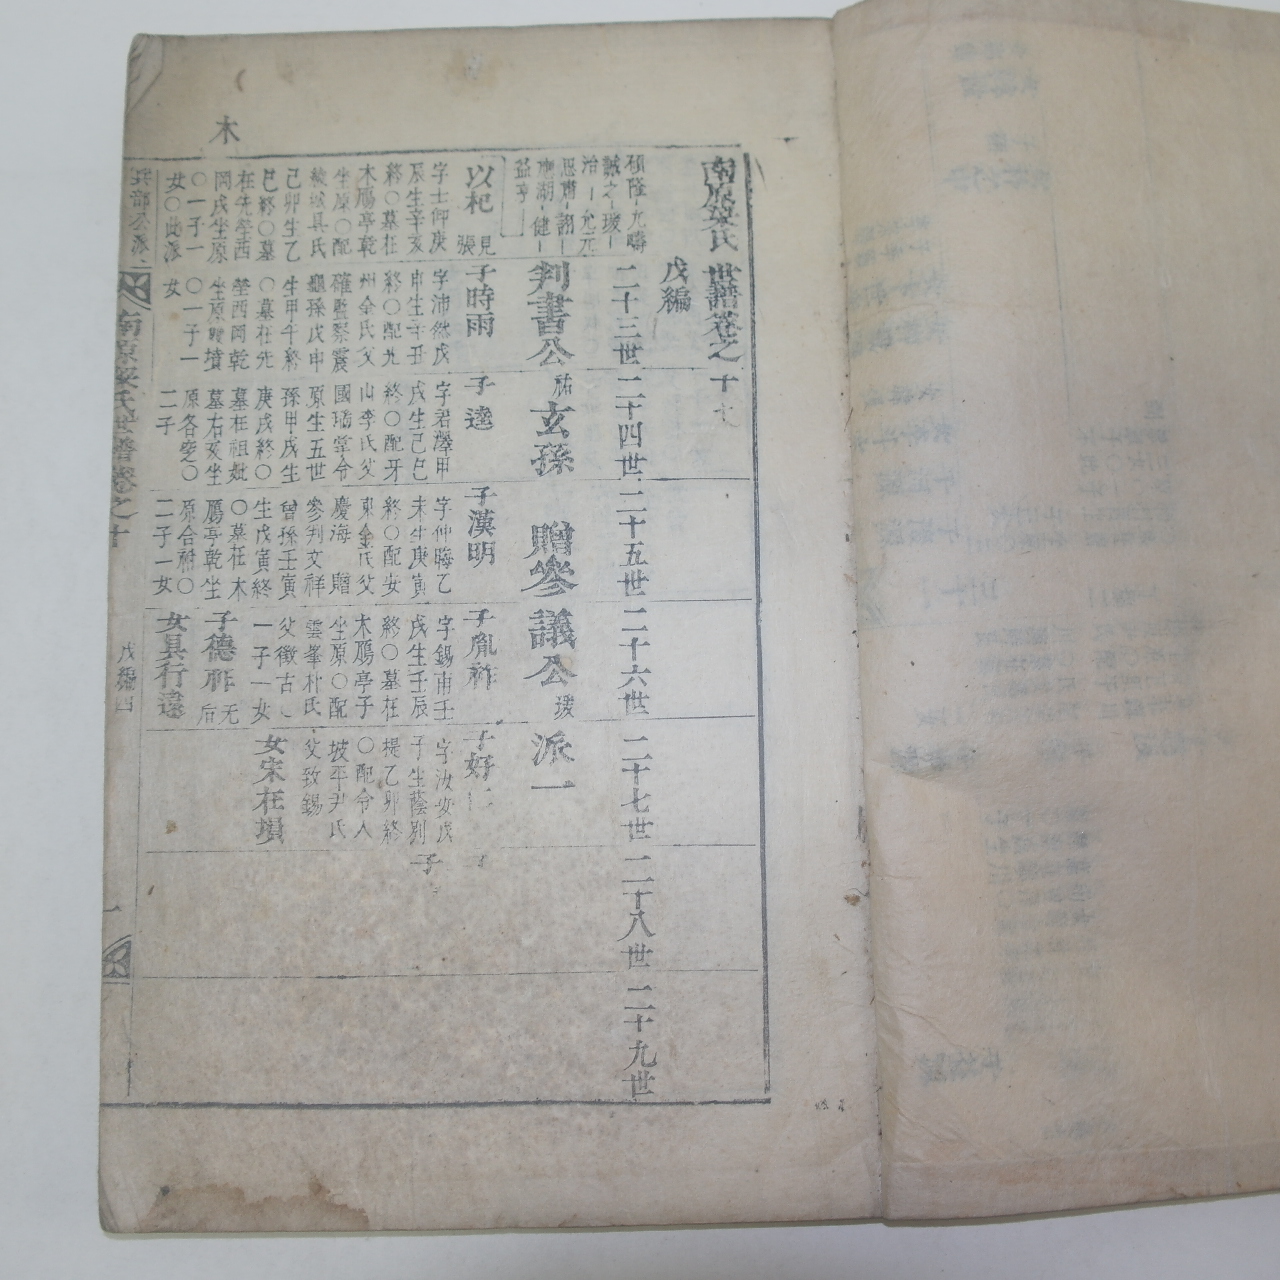 木
南原梁氏世譜卷之十
戊編
二十三世
二十四世
二十五世
二十六世
二十七世
二十八世
二十九世
碩隆-允疇
誠之-瑗-
治-允元
思肅-詡-
應湖-健-
益亨-
判書公祐玄孫 贈參議公瑗派一
以杞見張
字士仰庚
辰生辛亥
終〇墓在
木鴈亭乾
坐原〇配
綾城具氏
己卯生乙
巳終〇墓
在先塋西
岡戌坐原
〇一子一
女〇此派
子時雨
字沛然戊
申生辛丑
終〇配光
州金氏父
確監察震
龜孫戊申
生甲午終
〇墓在先
塋西岡乾
坐原雙墳
〇一子一
女
子達
字君澤甲
戌生己巳
終〇配牙
山李氏父
國璠掌令
原生五世
孫甲戌生
庚戌終〇
墓在祖妣
墓右亥坐
原各窆〇
二子
子漢明
字仲晦乙
未生庚寅
終〇配安
東金氏父
慶海 贈
參判文祥
曾孫壬寅
生戊寅終
〇墓在木
鴈亭乾坐
原合祔〇
二子一女
子胤祚
字錫甫壬
戌生壬辰
終〇墓在
木鴈亭子
坐原〇配
雲峯朴氏
父徵古
一子一女
子德祚无后
女具行遠
子好仁
字汝安戊
子生蔭別
提乙卯終
〇配令人
坡平尹氏
父致錫
女宋在塤
子
子
兵部公派
南原梁氏世譜卷之十
戊編四
一